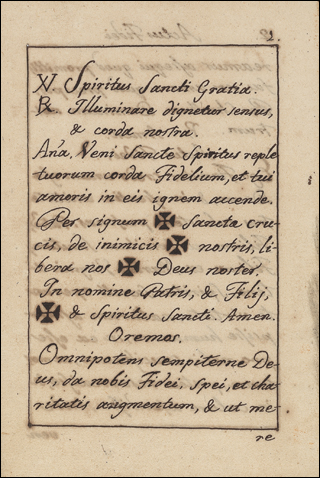 2.
℣. Spiritus Sancti Gratia.
℟. Illuminare dignetur sensus,
& corda nostra.
Aña. Veni Sancte Spiritus reple
tuorum corda Fidelium, et tui
amoris in eis ignem accende.
Per signum ✠ Sanctæ cru-
cis, de inimicis ✠ nostris, li-
bera nos ✠ Deus noster.
In nomine Patris, & Filij,
✠ & Spiritus Sancti. Amen.
Oremos.
Omnipotens sempiterne De-
us, da nobis Fidei, Spei, et cha-
ritatis augmentum, & ut me-
re